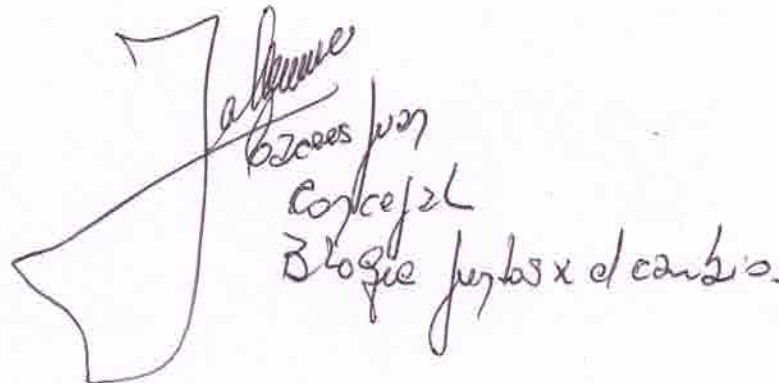 Caceres Juan
Concejal
Bloque Juntos x el cambio.